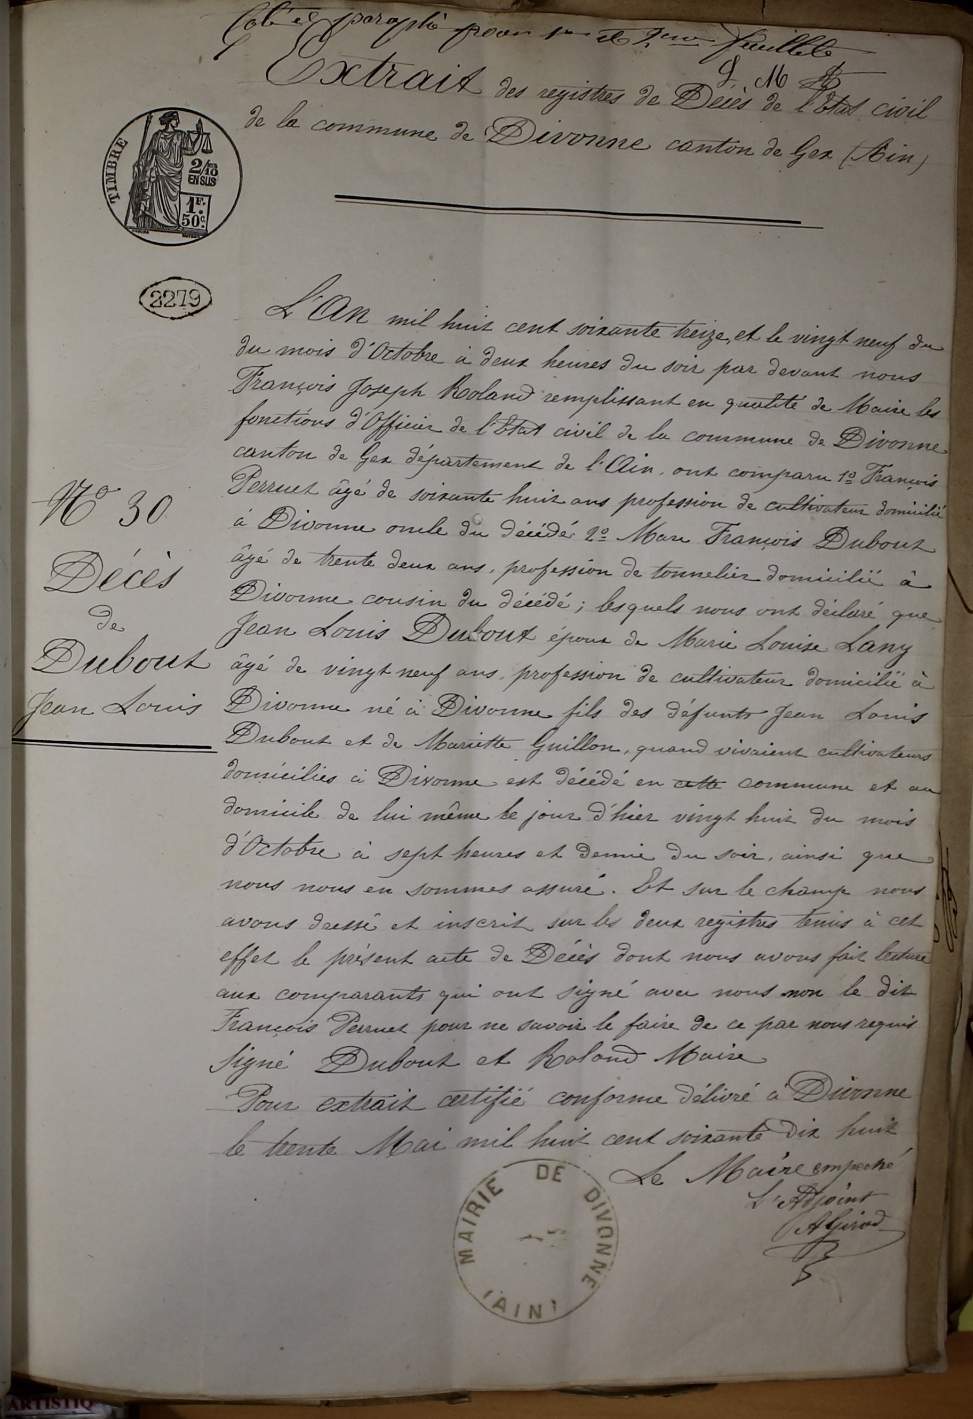 Coté et paraphé pour 1er et 2eme feuillets
L M
Extrait des registres de Décès de l'Etat civil
de la commune de Divonne canton de Gex (Ain)
TIMBRE
2/10
EN SUS
1F.
50c.
2279
L'An mil huit cent soixante treize, et le vingt neuf du
du mois d'Octobre à deux heures du soir par devant nous
François Joseph Roland remplissant en qualité de Maire les
fonctions d'Officier de l'Etat civil de la commune de Divonne
canton de Gex département de l'Ain, ont comparu 1º François
Perruet âgé de soixante huit ans profession de cultivateur domicilié
à Divonne oncle du décédé 2º Marc François Dubout
âgé de trente deux ans, profession de tonnelier domicilié à
Divonne cousin du décédé; lesquels nous ont déclaré que
Jean Louis Dubout époux de Marie Louise Lany
âgé de vingt neuf ans, profession de cultivateur domicilié à
Divonne né à Divonne fils des défunts Jean Louis
Dubout et de Mariette Guillon, quand vivaient cultivateurs
domiciliés à Divonne est décédé en cette commune et au
domicile de lui même le jour d'hier vingt huit du mois
d'Octobre à sept heures et demie du soir, ainsi que
nous nous en sommes assuré. Et sur le champ nous
avons dressé et inscrit sur les deux registres tenus à cet
effet le présent acte de Décès dont nous avons fait lecture
aux comparants qui ont signé avec nous non le dit
François Perruet pour ne savoir le faire de ce par nous requis
Signé Dubout et Roland Maire
Pour extrait certifié conforme délivré à Divonne
le trente Mai mil huit cent soixante dix huit
Le Maire empeché
L'Adjoint
A Girod
Nº 30
Décès
de
Dubout
Jean Louis
MAIRIE DE DIVONNE
(AIN)
ARTISTIQ